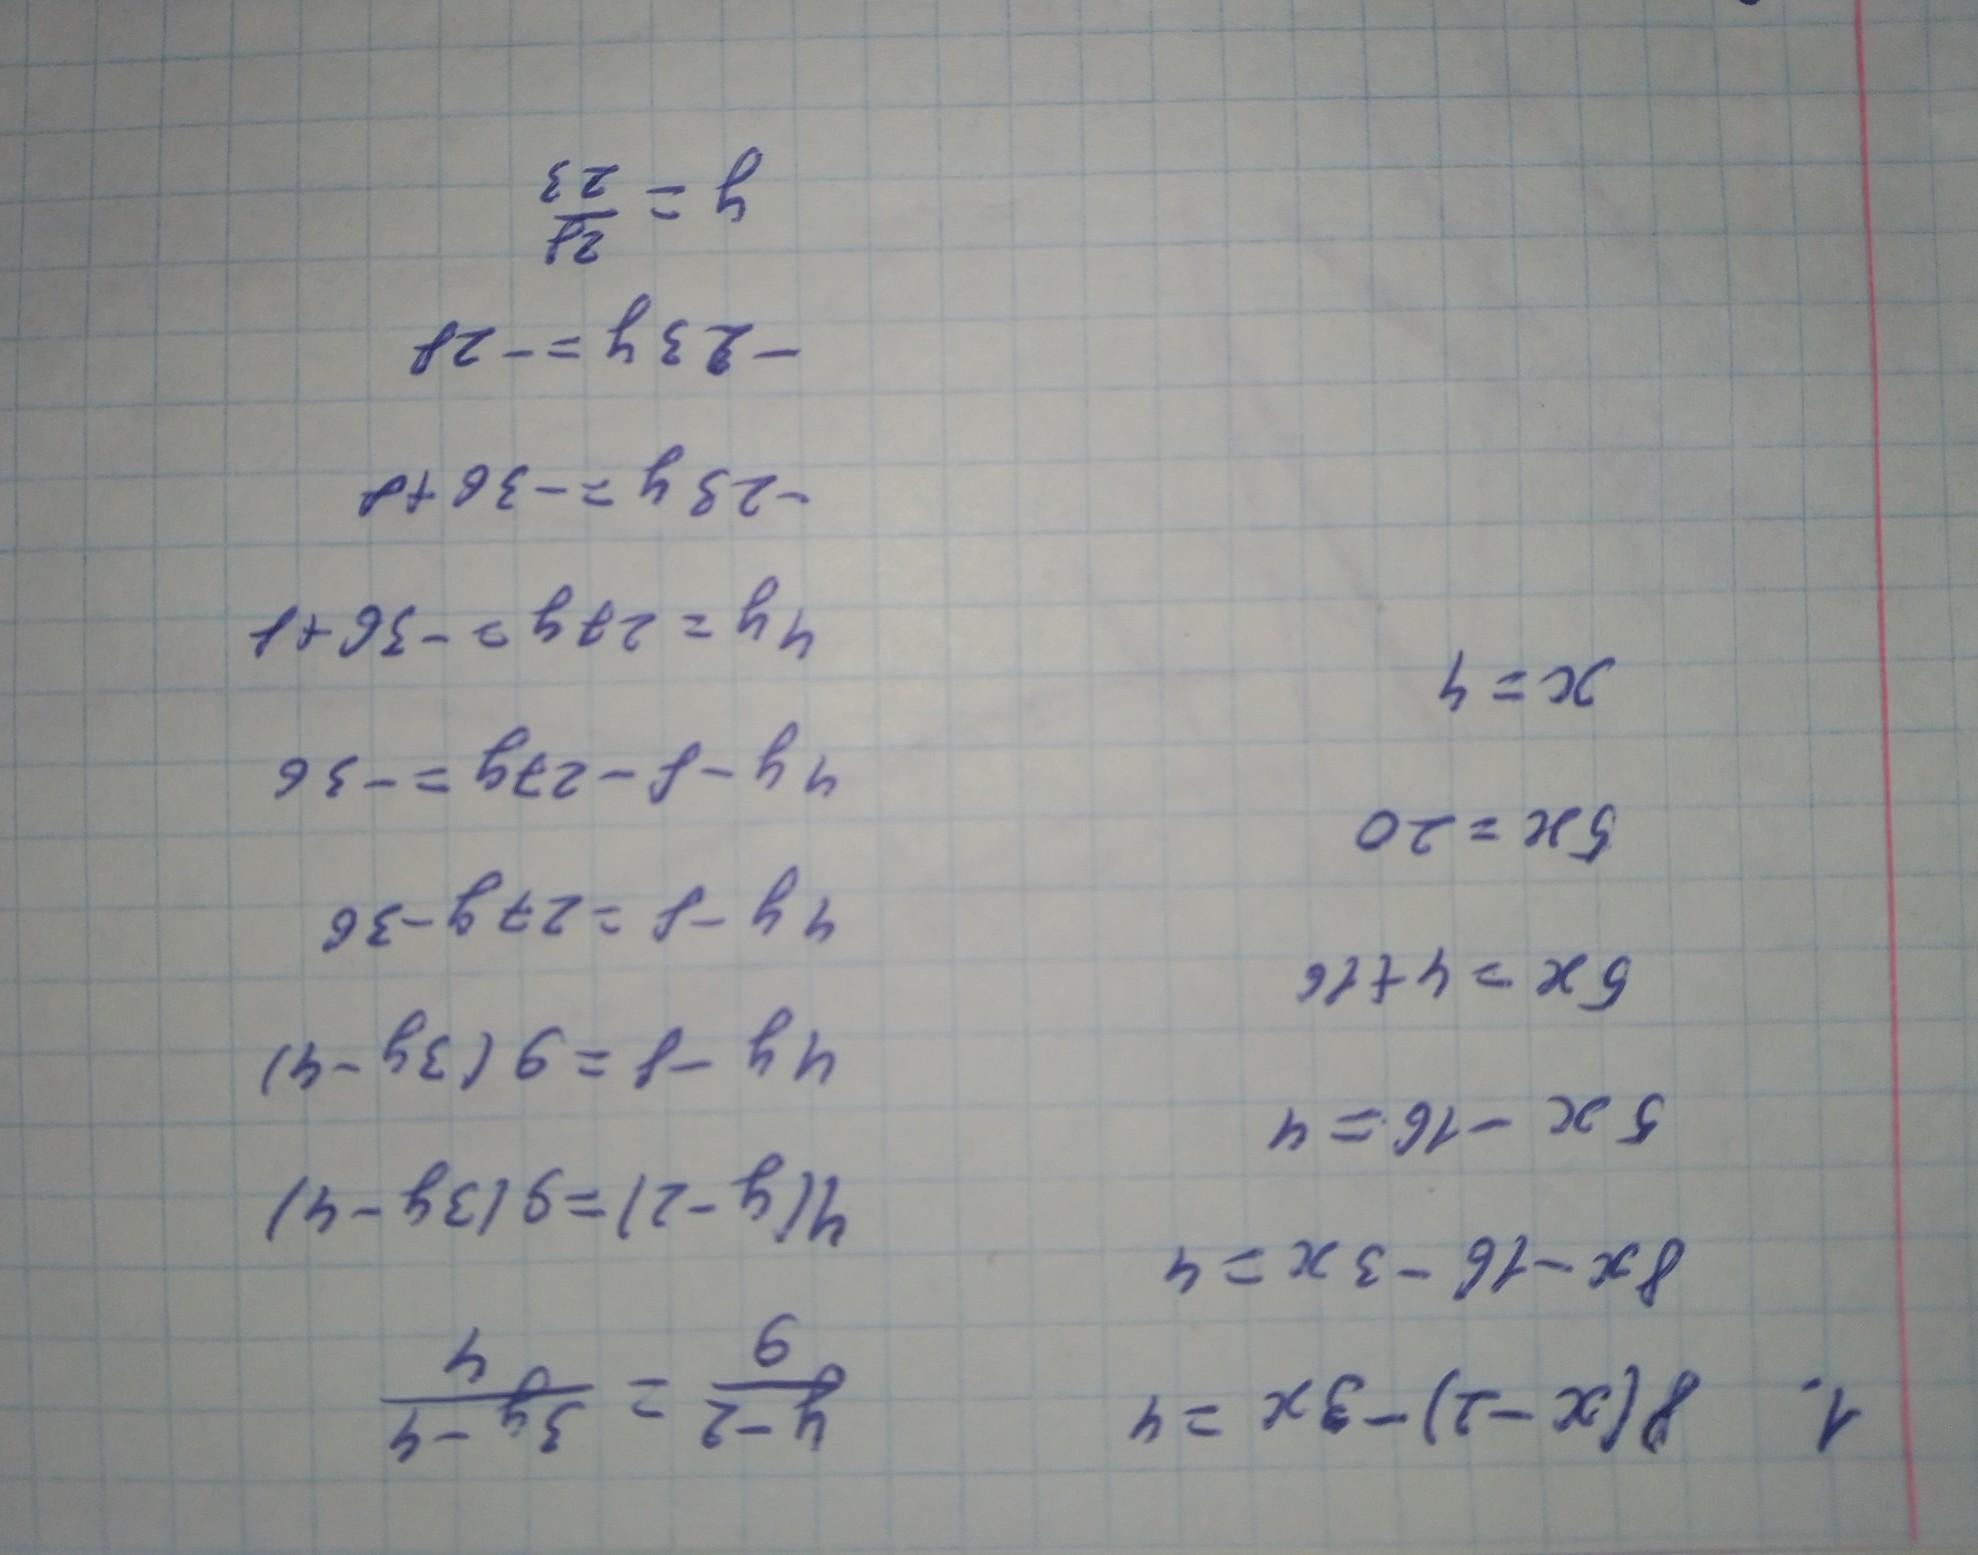 1. 8(x-2)-3x=4
8x-16-3x=4
5x-16=4
5x=4+16
5x=20
x=4
y-2/9 = 3y-4/4
4(y-2)=9(3y-4)
4y-8=9(3y-4)
4y-8=27y-36
4y-8-27y=-36
4y=27y=-36+8
-23y=-36+8
-23y=-28
y=28/23